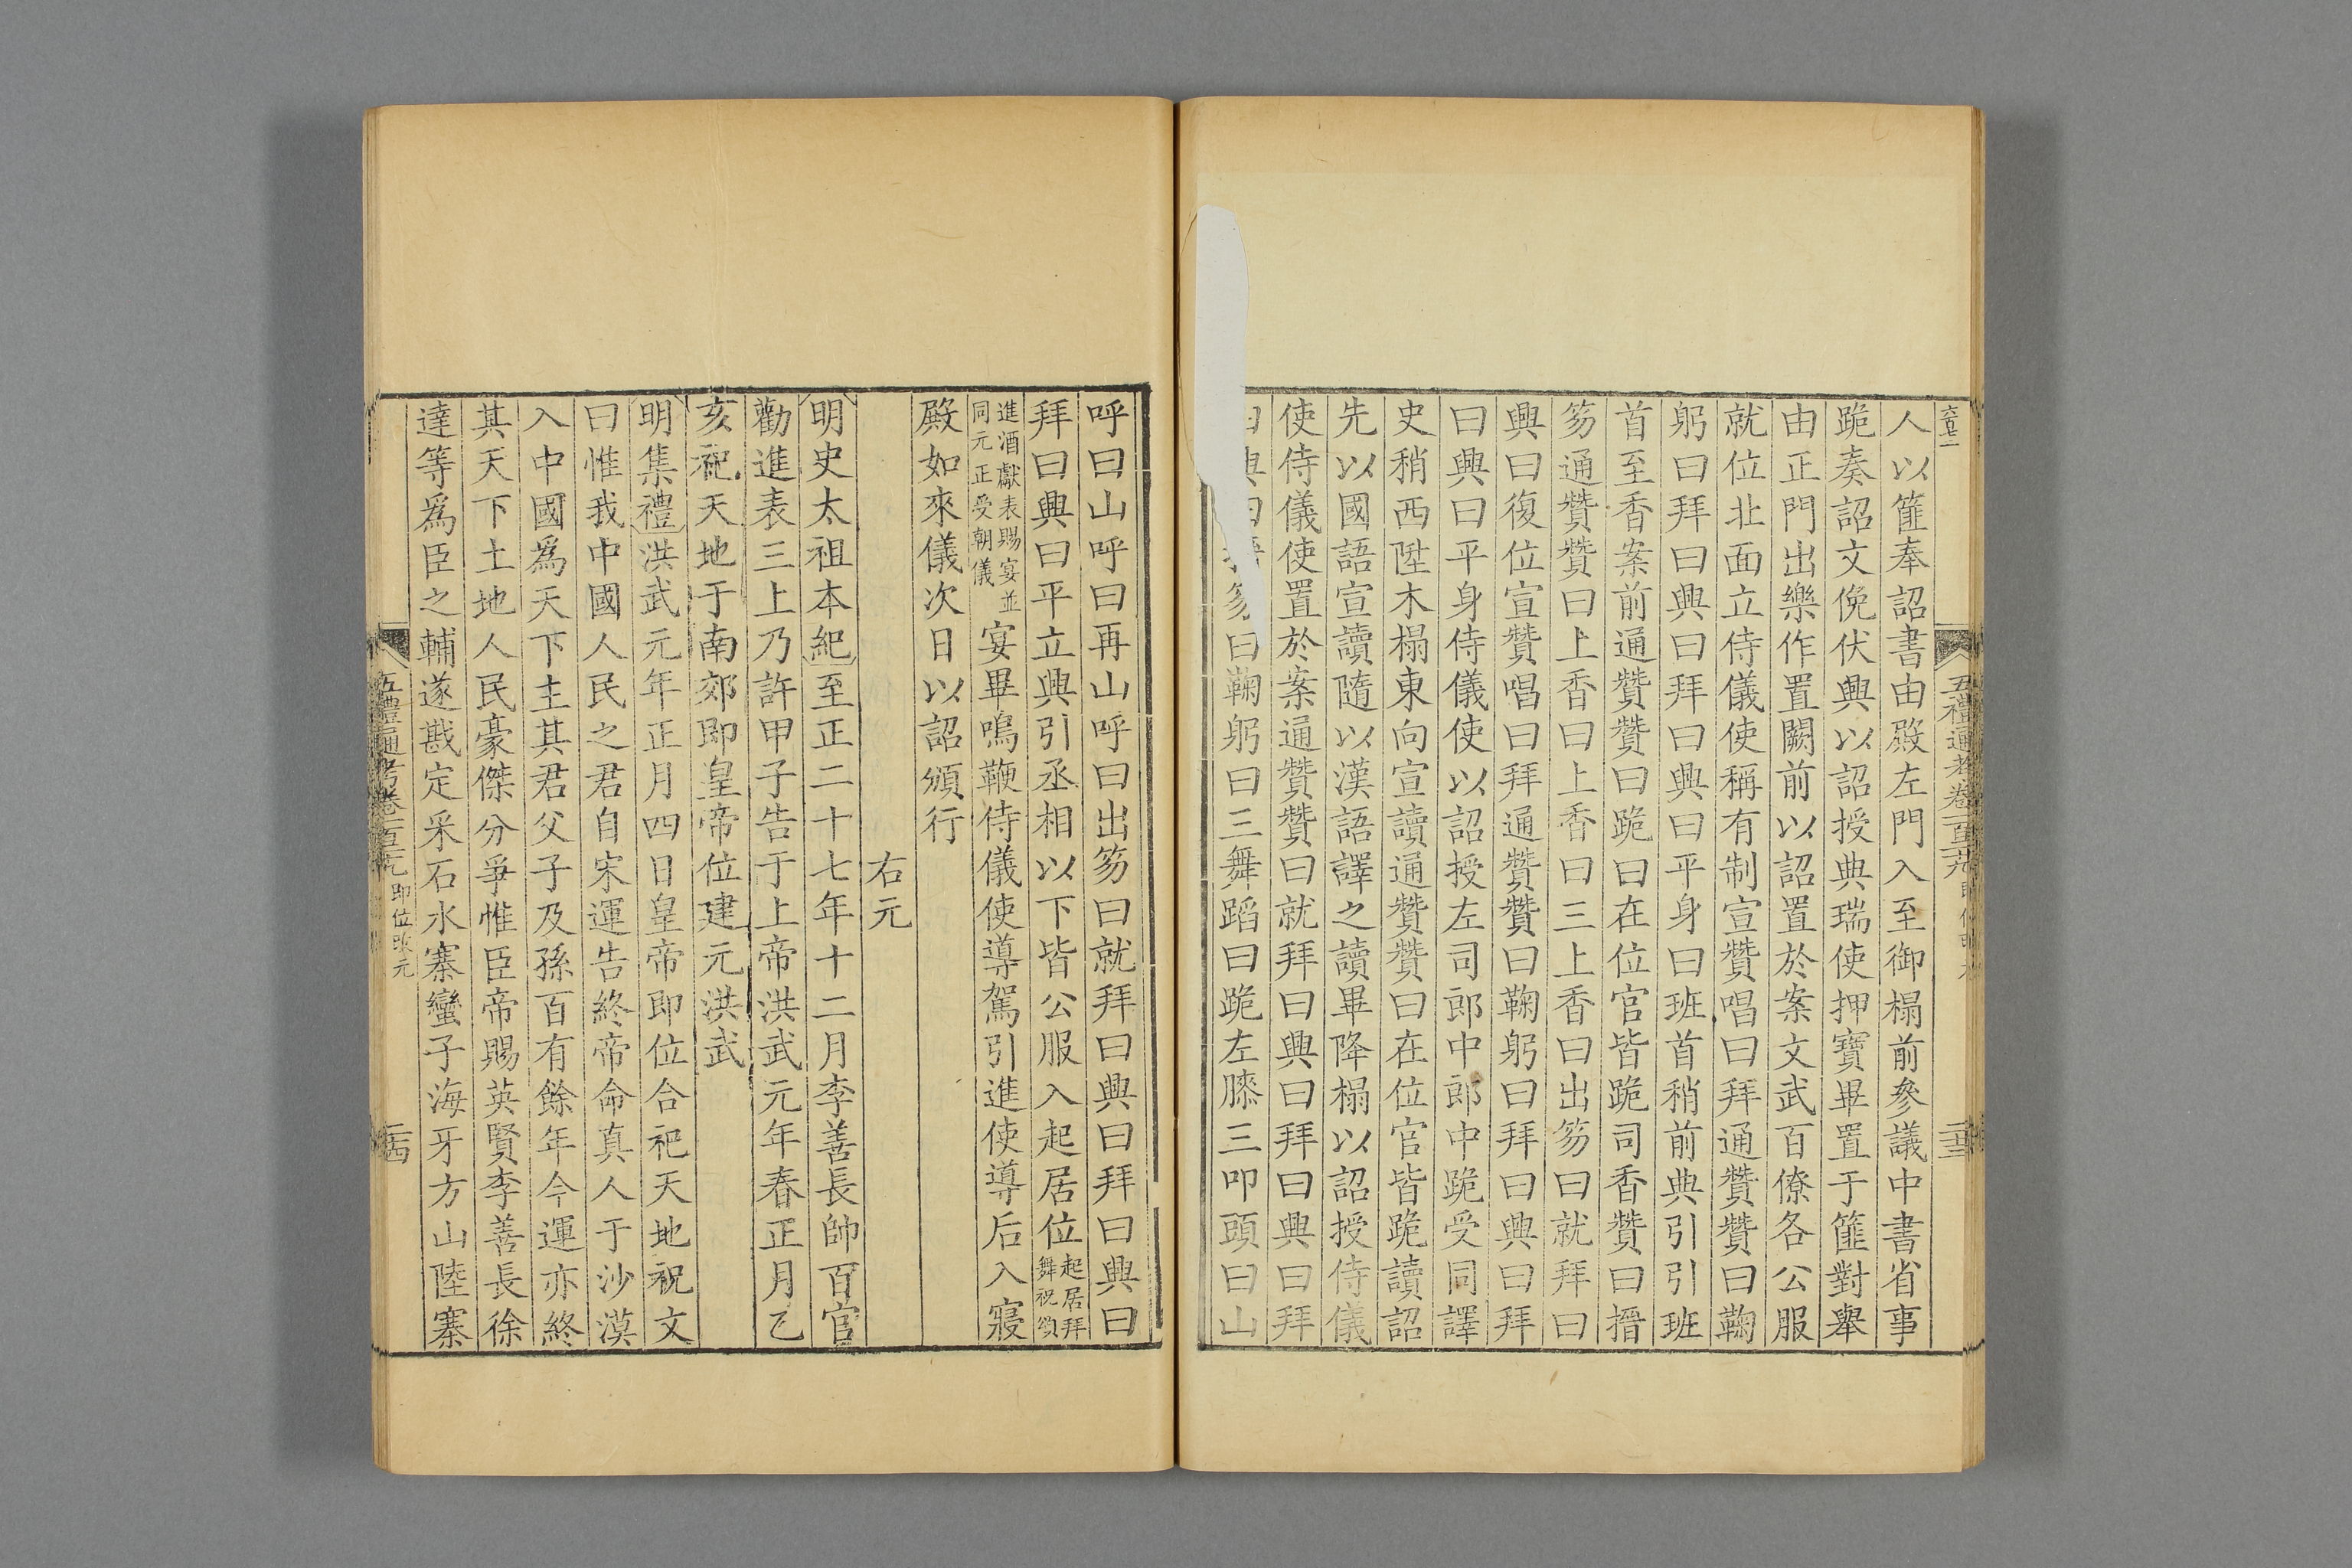 五禮通考卷一百二十九
人以篚奉詔書由殿左門入至御榻前參議中書省事
跪奏詔文俛伏興以詔授典瑞使押寶畢置于篚對舉
由正門出樂作置闕前以詔置於案文武百僚各公服
就位北面立侍儀使稱有制宣贊唱曰拜通贊贊曰鞠
躬曰拜曰興曰拜曰興曰平身曰班首稍前典引引班
首至香案前通贊贊曰跪曰在位官皆跪司香贊曰搢
笏通贊贊曰上香曰上香曰三上香曰出笏曰就拜曰
興曰復位宣贊唱曰拜通贊贊曰鞠躬曰拜曰興曰拜
曰興曰平身侍儀使以詔授左司郎中郎中跪受同譯
史稍西陞木榻東向宣讀通贊贊曰在位官皆跪讀詔
先以國語宣讀隨以漢語譯之讀畢降榻以詔授侍儀
使侍儀使置於案通贊贊曰就拜曰興曰拜曰興曰拜
笏曰鞠躬曰三舞蹈曰跪左膝三叩頭曰山
呼曰山呼曰再山呼曰出笏曰就拜曰興曰拜曰興曰
拜曰興曰平立興引丞相以下皆公服入起居位起居拜舞祝頌
進酒獻表賜宴並同元正受朝儀宴畢鳴鞭侍儀使導駕引進使導后入寢
殿如來儀次日以詔頒行
右元
明史太祖本紀至正二十七年十二月李善長帥百官
勸進表三上乃許甲子告于上帝洪武元年春正月乙
亥祀天地于南郊即皇帝位建元洪武
明集禮洪武元年正月四日皇帝即位合祀天地祝文
曰惟我中國人民之君自宋運告終帝命真人于沙漠
入中國為天下主其君父子及孫百有餘年今運亦終
其天下土地人民豪傑分爭惟臣帝賜英賢李善長徐
達等爲臣之輔遂戡定采石水寨蠻子海牙方山陸寨
五禮通考卷一百二十九 即位改元 二十四